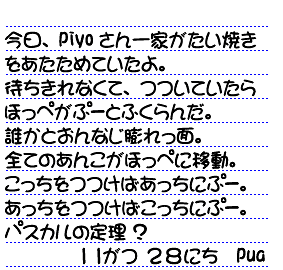 今日、Piyoさん一家がたい焼き
をあたためていたよ。
待ちきれなくて、つついていたら
ほっぺがぷーとふくらんだ。
誰かとおんなじ膨れっ面。
全てのあんこがほっぺに移動。
こっちをつつけばあっちにぷー。
あっちをつつけばこっちにぷー。
パスカルの定理？
11がつ 28にち Pua